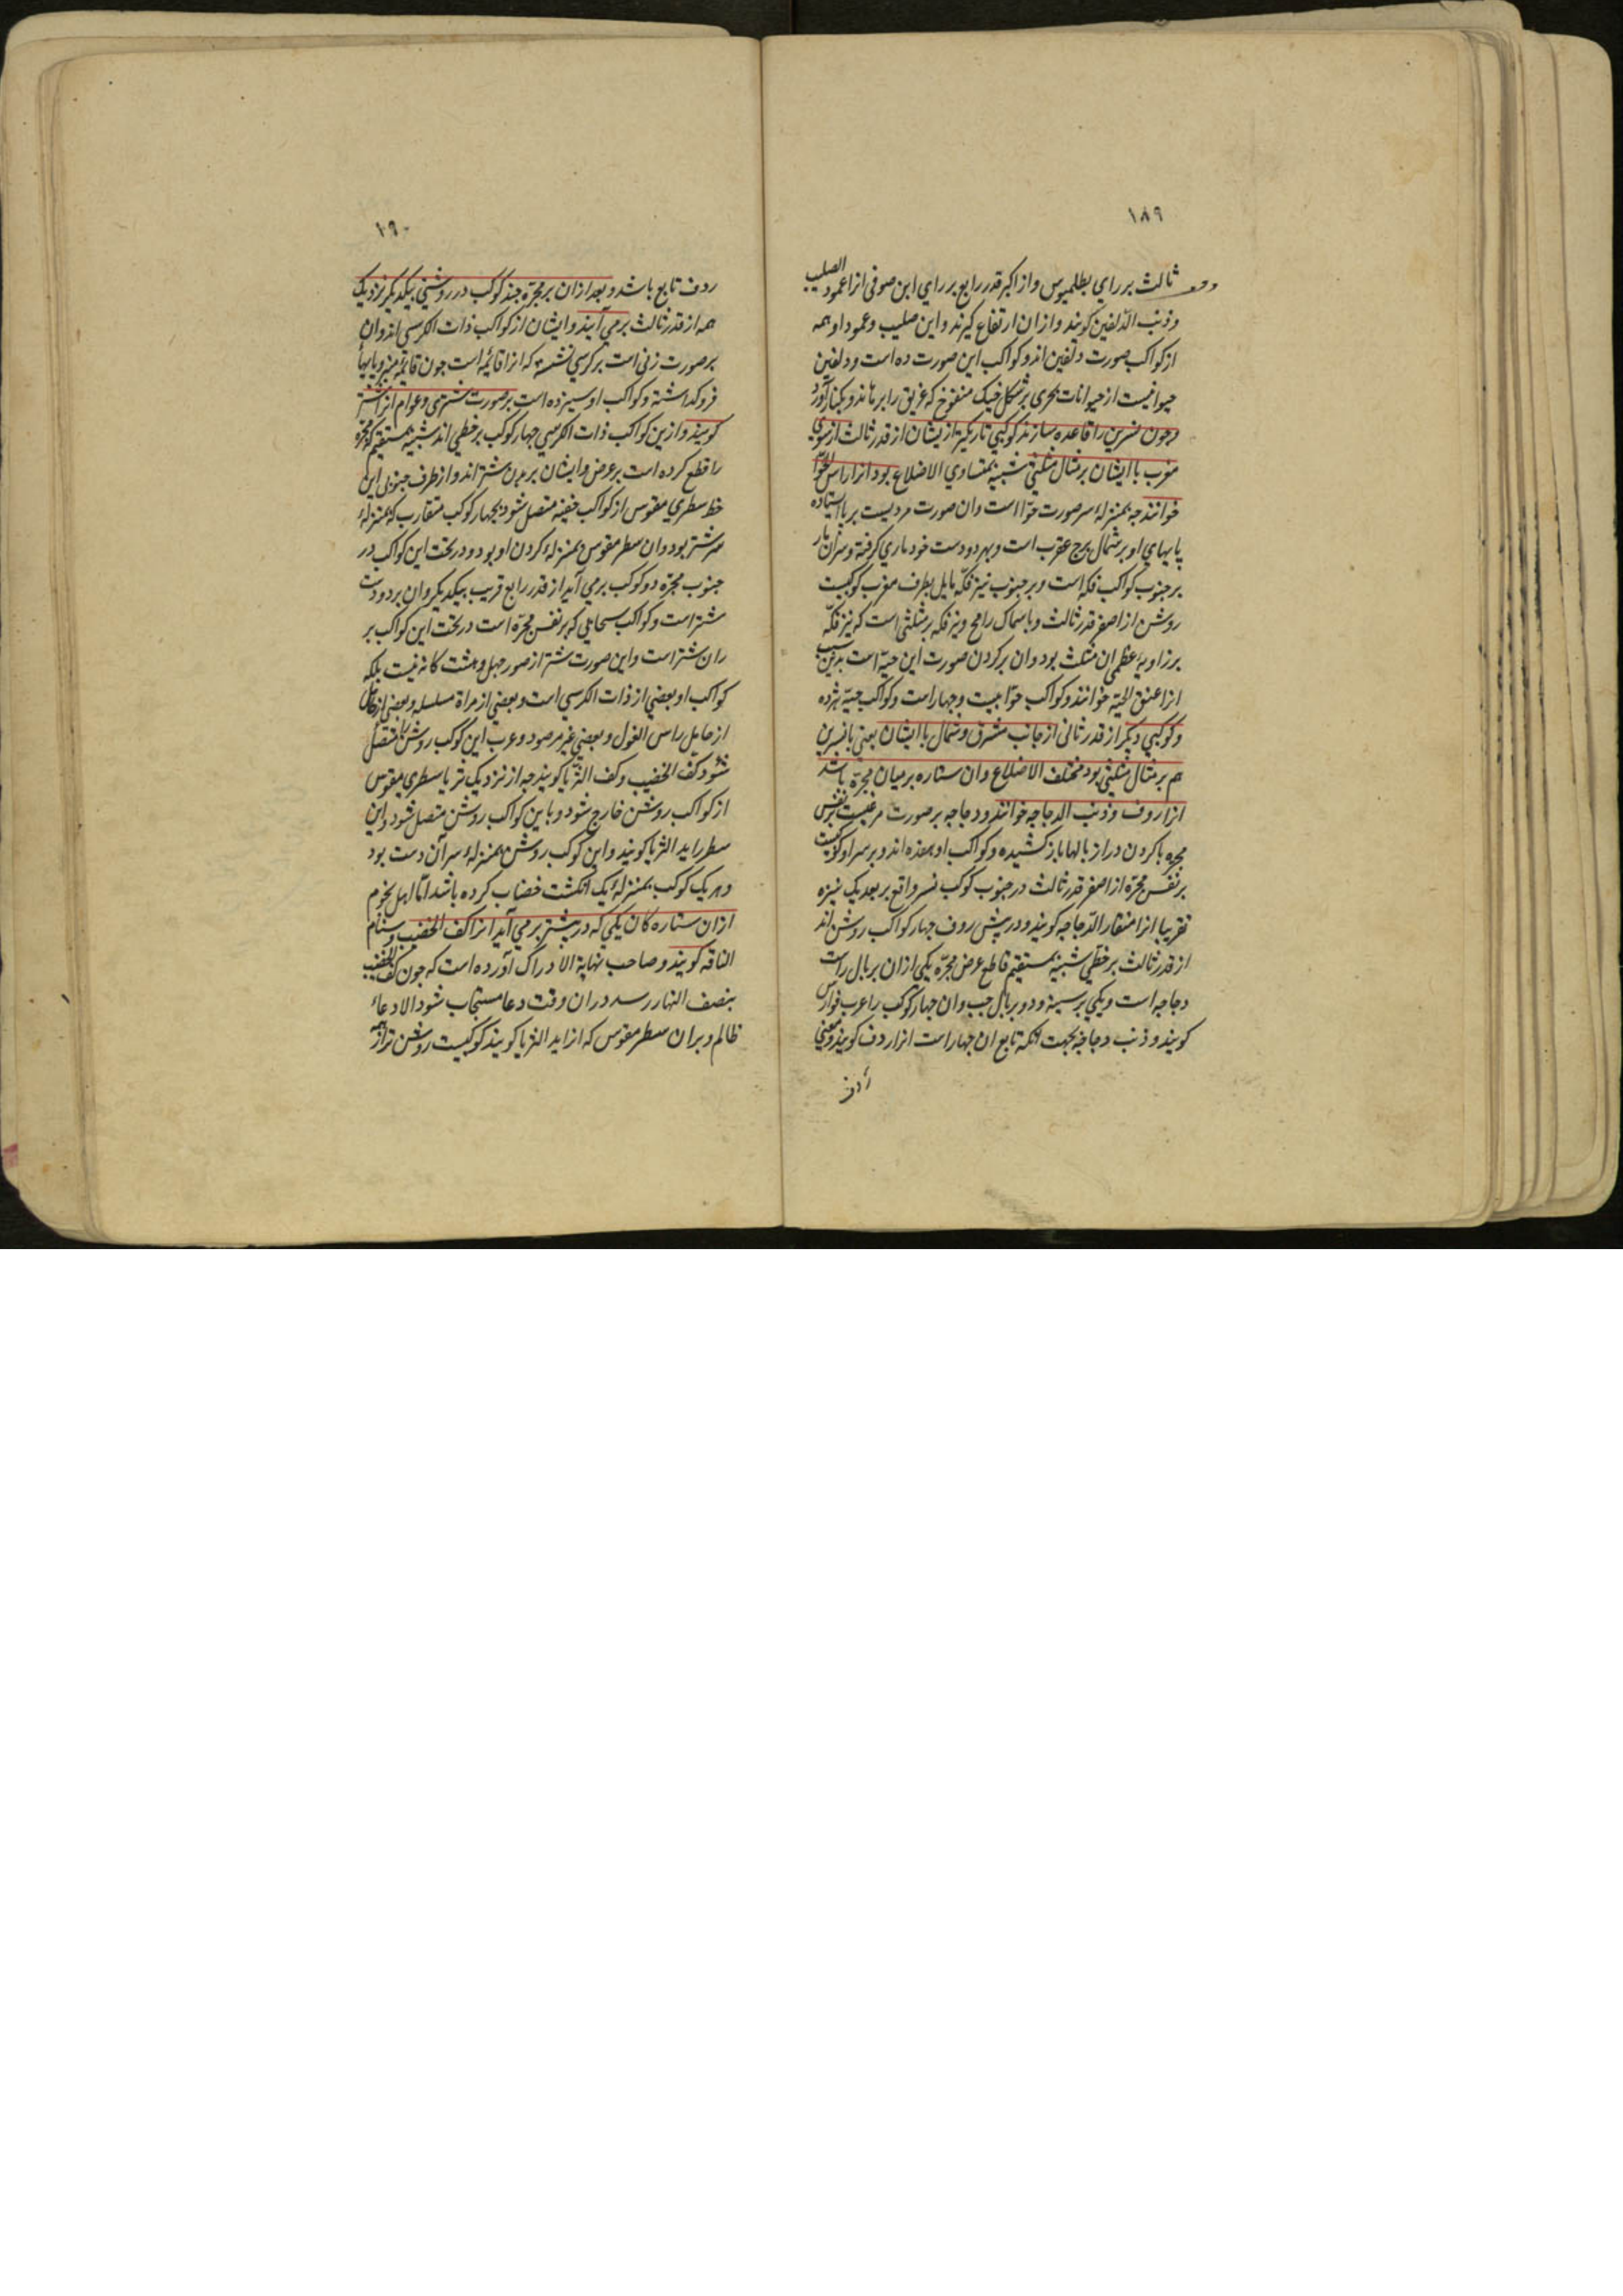 ١٨٩
ثالث بر رای بطلمیوس و از اکبر قدر رابع بر رای ابن صوفی انرا عمود الصلیب
و ذنب الدلفین کویند و ازان ارتفاع کیرند و این صلیب و عمود او همه
از کواکب صورت دلفین اند و کواکب این صورت ده است و دلفین
حیوانیست از حیوانات بحری بر شکل خیک منفوخ که غریق را برهاند و بکنار آورد
و چون نسرین را قاعده سازند کوکبی تاریکتر ازیشان از قدر ثالث از سوی
مغرب با ایشان بر مثال مثلثی شبیه بمتساوی الاضلاع بود انرا راس الحوا
خوانند چه بمنزلهٔ سر صورت حوا است و ان صورت مردیست بر پا ایستاده
پایهای او بر شمال برج عقرب است و بهر دو دست خود ماری کرفته و سر ان مار
بر جنوب کواکب فکه است و بر جنوب نیر فکه مایل بطرف مغرب کوکبیست
روشن از اصغر قدر ثالث و با سماک رامح و نیر فکه بر مثلثی است که نیر فکه
بر زاویه عظمی ان مثلث بود و ان بر کردن صورت این حیه است بدین سبب
انرا عنق الحیه خوانند و کواکب حوا بیست و چهار است و کواکب حیه هژده
و کوکبی دیکر از قدر ثانی از جانب مشرق و شمال با ایشان یعنی با نسرین
هم بر مثال مثلثی بود مختلف الاضلاع و ان ستاره بر میان مجره باشد
انرا ردف و ذنب الدجاجه خوانند و دجاجه بر صورت مرغیست بر نفس
مجره با کردن دراز بالها باز کشیده و کواکب او هفده اند و بر سر او کوکبیست
بر نفس مجره از اصغر قدر ثالث در جنوب کوکب نسر واقع بر بعد یک نیزه
تقریبا انرا منقار الدجاجه کویند و در پیش ردف چهار کواکب روشن اند
از قدر ثالث بر خطی شبیه بمستقیم قاطع عرض مجره یکی ازان بر بال راست
دجاجه است و یکی بر سینه و دو بر بال چپ و ان چهار کوکب را عرب فوارس
کویند و ذنب دجاجه بجهت انکه تابع ان چهار است انرا ردف کویند و معنی
١٩٠
ردف تابع باشد و بعد ازان بر مجره چند کوکب در روشنی بیکدیکر نزدیک
همه از قدر ثالث برمی آیند و ایشان از کواکب ذات الکرسی اند و ان
بر صورت زنی است بر کرسی نشسته که انرا قایمه است چون قایمه منبر و پایها
فروکذاشته و کواکب او سیزده است بر صورت شتری و عوام انرا شتر
کویند و ازین کواکب ذات الکرسی چهار کوکب بر خطی اند شبیه بمستقیم که مجره
را قطع کرده است بر عرض و ایشان بر بدن شتر اند و از طرف جنوبی این
خط سطری مقوس از کواکب خفیه متصل شود بچهار کوکب متقارب که بمنزلهٔ
سر شتر بود و ان سطر مقوس بمنزلهٔ کردن او بود و در تحت این کواکب در
جنوب مجره دو کوکب برمی آید از قدر رابع قریب بیکدیکر و ان بر دو دست
شتر است و کواکب سحابی که بر نفس مجره است در تحت این کواکب بر
ران شتر است و این صورت شتر از صور چهل و هشت کانه نیست بلکه
کواکب او بعضی از ذات الکرسی است و بعضی از مراة مسلسله و بعضی از
از حامل راس الغول و بعضی غیر مرصود و عرب این کوکب روشن را متصل
شود کف الخضیب و کف الثریا کویند چه از نزدیک ثریا سطری مقوس
از کواکب روشن خارج شود و باین کواکب روشن متصل شود و این
سطر را ید الثریا کویند و این کوکب روشن بمنزلهٔ سر آن دست بود
و هر یک کوکب بمنزلهٔ یک انکشت خضاب کرده باشد اما اهل نجوم
ازان ستارکان یکی که در پیشتر برمی آید انرا کف الخضیب و سنام
الناقه کویند و صاحب نهایة الادراک آورده است که چون کف الخضیب
بنصف النهار رسد در ان وقت دعا مستجاب شود الا دعاء
ظالم و بران سطر مقوس که انرا ید الثریا کویند کوکبیست روشن تر از همه